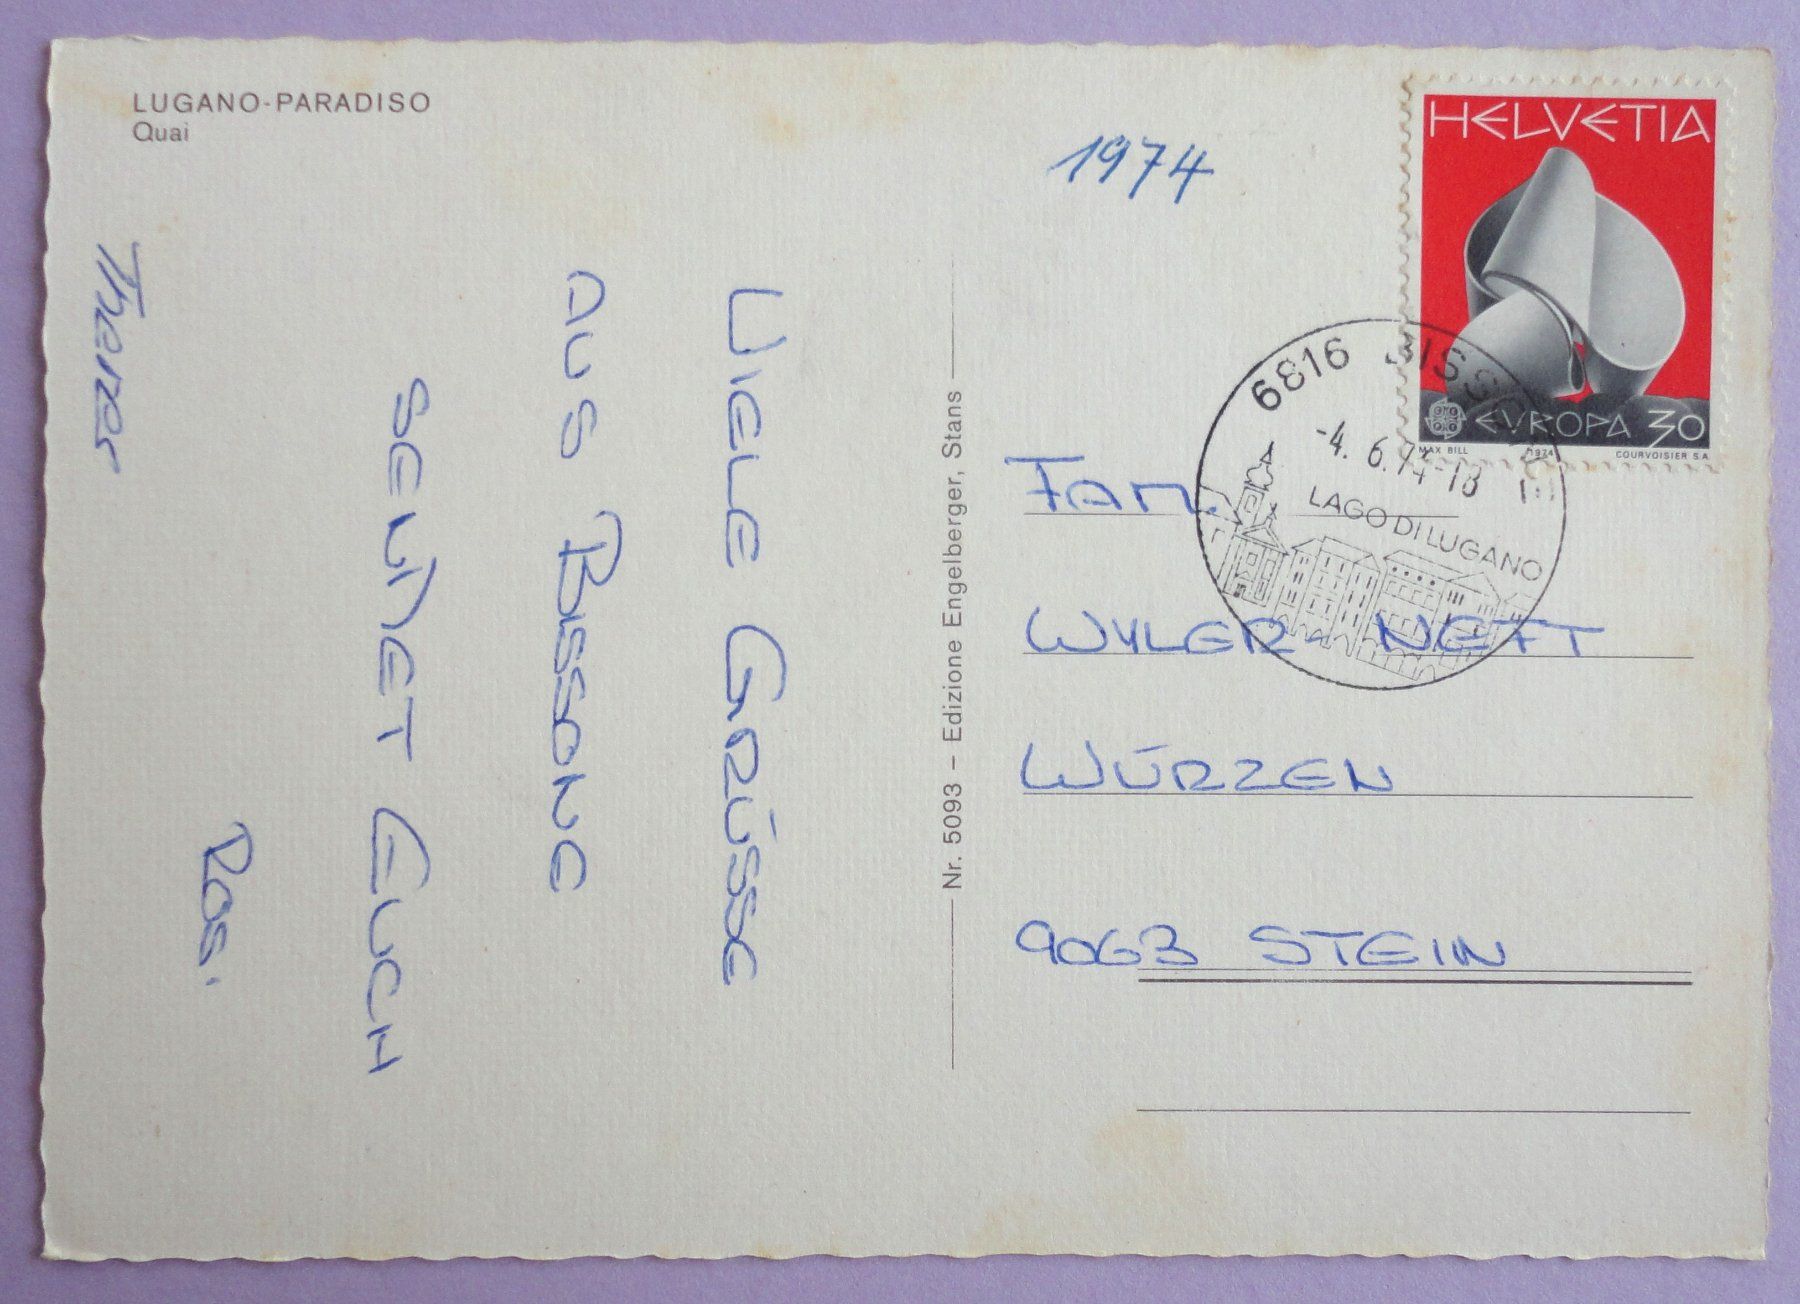 LUGANO-PARADISO
Quai
1974
HELVETIA
EUROPA 30
MAX BILL 1974 COURVOISIER S.A.
6816 BISSONE
-4. 6. 74-18
LAGO DI LUGANO
VIELE GRÜSSE
AUS BISSONE
SENDET EUCH
ROS.
Theres
Nr. 5093 – Edizione Engelberger, Stans
FAM.
WYLER-NEFF
WÜRZEN
9063 STEIN